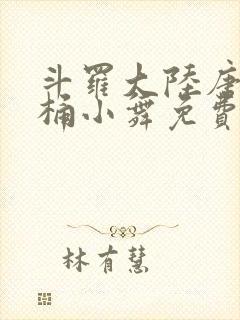 斗羅大陸唐
桶小舞免費
林有慧